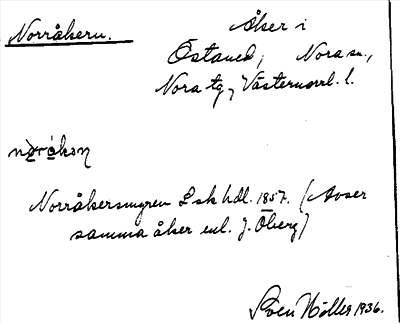 Norråkern.
Åker i
Östaned, Nora sn.,
Nora tg, Västernorrl. l.
Norråkersmyren Lsk hdl. 1857. (Avser
samma åker enl. J. Öberg)
Sven Höller 1936.